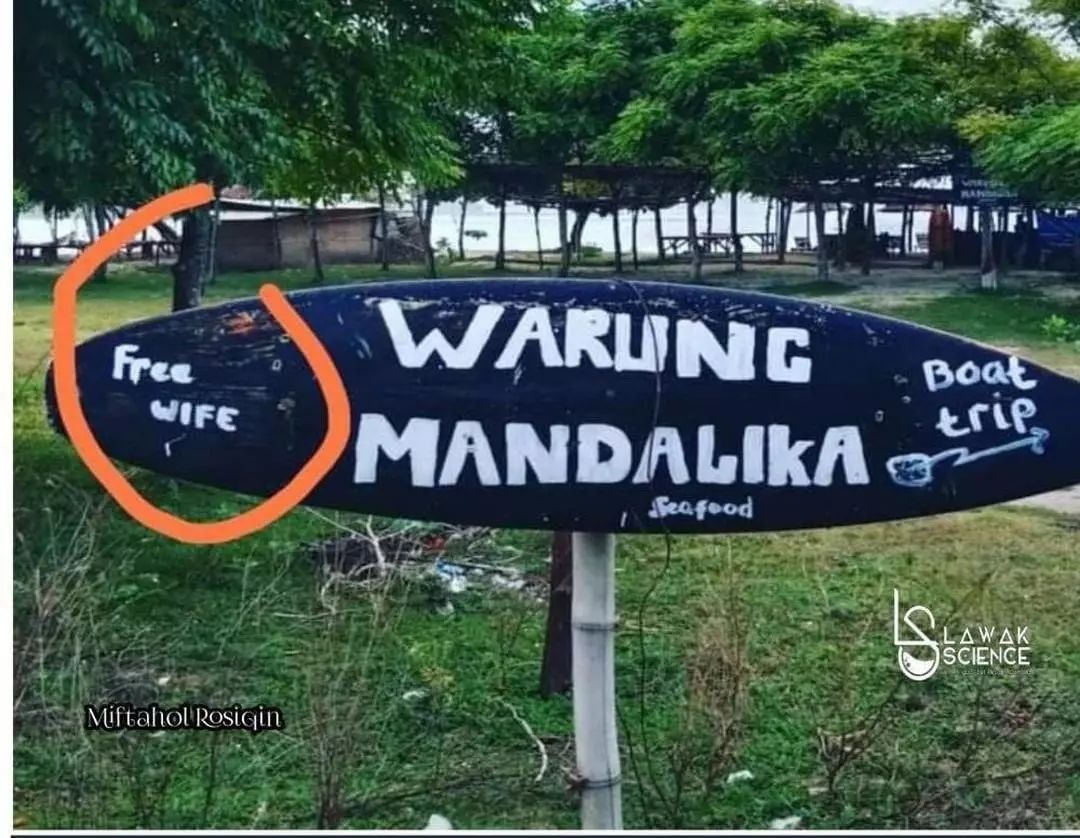 Free
WIFE
WARUNG
MANDALIKA
Seafood
Boat
trip
LAWAK
SCIENCE
Miftahol Rosiqin